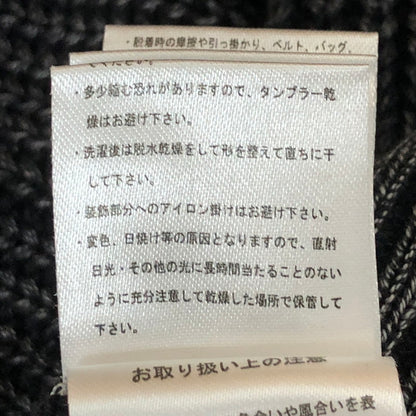 ・脱着時の摩擦や引っ掛かり、ベルト、バッグ、
ください。
・多少縮む恐れがありますので、タンブラー乾
燥はお避け下さい。
・洗濯後は脱水乾燥をして形を整えて直ちに干
して下さい。
・装飾部分へのアイロン掛けはお避け下さい。
・変色、日焼け等の原因となりますので、直射
日光・その他の光に長時間当たることのない
ように充分注意して乾燥した場所で保管して
下さい。
お取り扱い上の注意
色合いや風合いを表